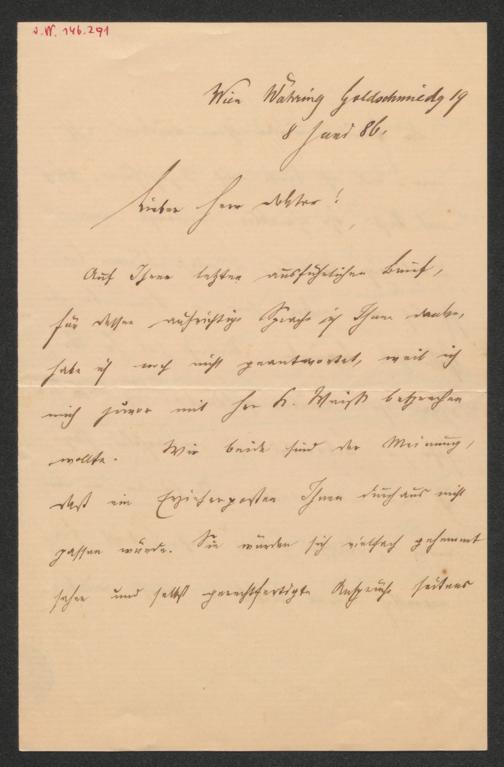 J.N. 146.291
Wien Währing Goldschmiedg 19
8 Juni 86.
Lieber Herr Doktor!
Auf Ihren letzten ausführlichen Brief,
für dessen aufrichtige Sprache ich Ihnen danke,
habe ich noch nicht geantwortet, weil ich
mich zuvor mit Hr K. Weiß besprechen
wollte. Wir beide sind der Meinung,
daß ein Erzieherposten Ihnen durchaus nicht
passen würde. Sie würden sich vielfach gehemmt
sehen und selbst gerechtfertigte Ansprüche seitens